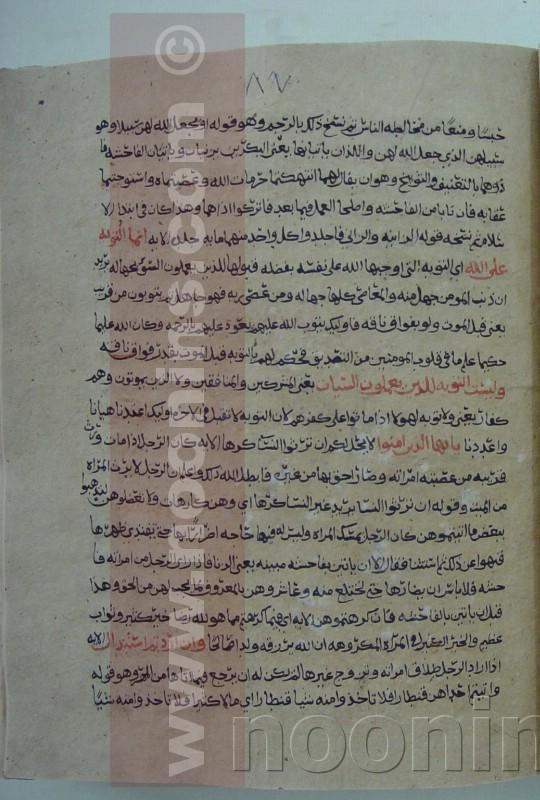 ٨٧
حبسا ومنعا من مخالطه الناس ثم نسخ ذلك بالرجم وهو قوله او يجعل الله لهن سبيلا وهو
سبيلهن الذي جعل الله لهن واللذان ياتيانها يعنى البكرين يزنيان وياتيان الفاحشه فا
ذوهما بالتعنيف والتوبيخ وهو ان يقال لهما انتهكتما حرمات الله وعصيتماه واستوجبتما
عقابه فان تابا من الفاحشه واصلحا العمل فيما بعد فاتركوا اذاهما وهذا كان في ابتدا الا
سلام ثم نسخه قوله الزانيه والزاني فاجلدوا كل واحد منهما مايه جلده الايه انما التوبه
على الله اي التوبه التي اوجبها الله على نفسه بفضله قبولها للذين يعملون السوء بجهاله يريد
ان ذنب المومن جهل منه والمعاصي كلها جهاله ومن عصى ربه فهو جاهل ثم يتوبون من قريب
يعنى قبل الموت ولو بفواق ناقه فاوليك يتوب الله عليهم يعود عليهم بالرحمه وكان الله عليما
حكيما علم ما في قلوب المومنين من التصديق فحكم لهم بالتوبه قبل الموت بقدر فواق ناقه
وليست التوبه للذين يعملون السيات يعنى المشركين والمنافقين ولا الذين يموتون وهم
كفار يعنى ولا توبه لهولا اذا ماتوا على كفرهم لان التوبه لا تقبل في الاخره اوليك اعتدنا هيانا
واعددنا يا ايها الذين امنوا لا يحل لكم ان ترثوا النساء كرها الايه كان الرجل اذا مات ورث
قريبه من عصبته امراته وصار احق بها من غيره فابطل الله ذلك واعلم ان الرجل لا يرث المراه
من الميت وقوله ان ترثوا النسا يريد عين النسا كرها اي وهن كارهات ولا تعضلوهن لتذهبوا
ببعض ما اتيتموهن كان الرجل يمسك المراه وليس له فيها حاجه اضرارا بها حتى تفتدي بمهرها
فنهوا عن ذلك ثم استثنى فقال الا ان ياتين بفاحشه مبينه يعنى الزنا فاذا راى الرجل من امراته فا
حشه فلا باس ان يضارها حتى تختلع منه وعاشروهن بالمعروف وما يجب لهن من الحق وهذا
قبل ان ياتين بالفاحشه فان كرهتموهن الايه اي فيما كرهتم مما هو لله رضا خير كثير وثواب
عظيم والخير الكثير في المراه المكروهه ان الله يرزقه ولدا صالحا وان اردتم استبدال الايه
اذا اراد الرجل طلاق امراته وتزوج غيرها لم يكن له ان يرجع فيما اتاها من المهر وهو قوله
واتيتم احداهن قنطارا فلا تاخذوا منه شيا قنطارا اي مالا كثيرا فلا تاخذوا منه شيا
www.noonins.com ©
noonin